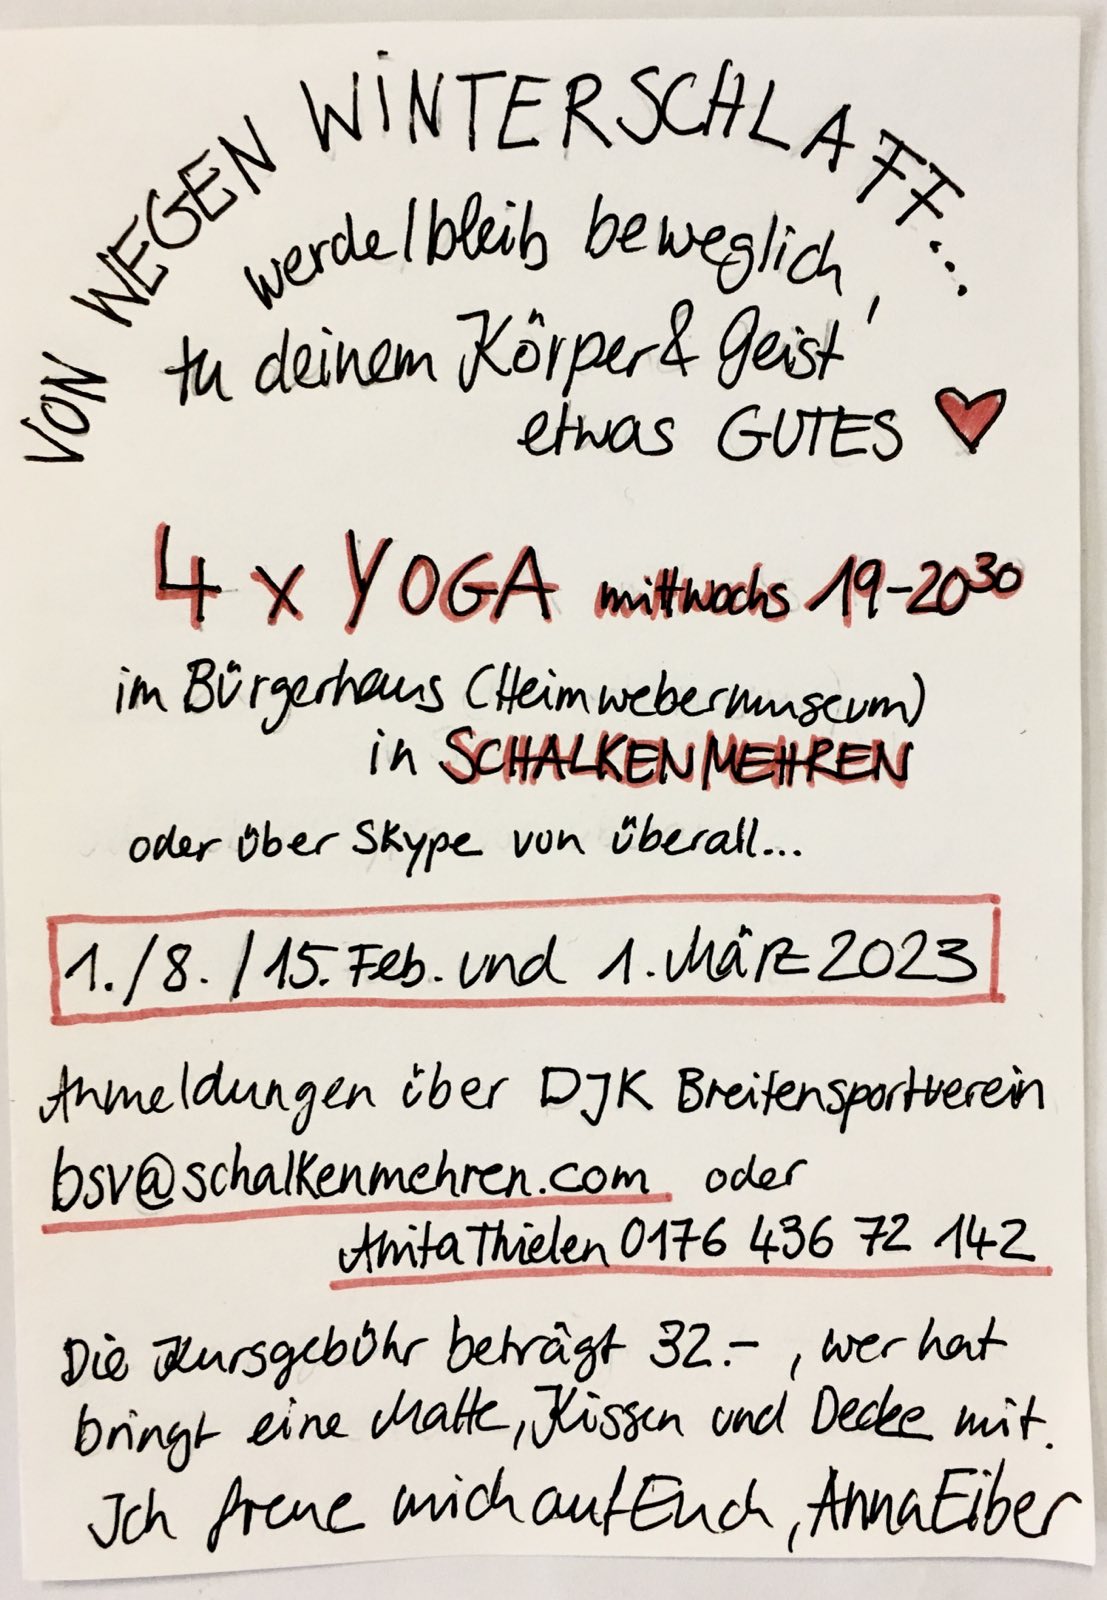 VON WEGEN WINTERSCHLAFF...
werde/bleib beweglich,
tu deinem Körper & Geist
etwas GUTES
4 x YOGA mittwochs 19-20³⁰
im Bürgerhaus (Heimwebermuseum)
in SCHALKENMEHREN
oder über Skype von überall...
1./8./15. Feb. und 1. März 2023
Anmeldungen über DJK Breitensportverein
bsv@schalkenmehren.com oder
Anita Thielen 0176 436 72 142
Die Kursgebühr beträgt 32.-, wer hat
bringt eine Matte, Kissen und Decke mit.
Ich freue mich auf Euch, Anna Eiber